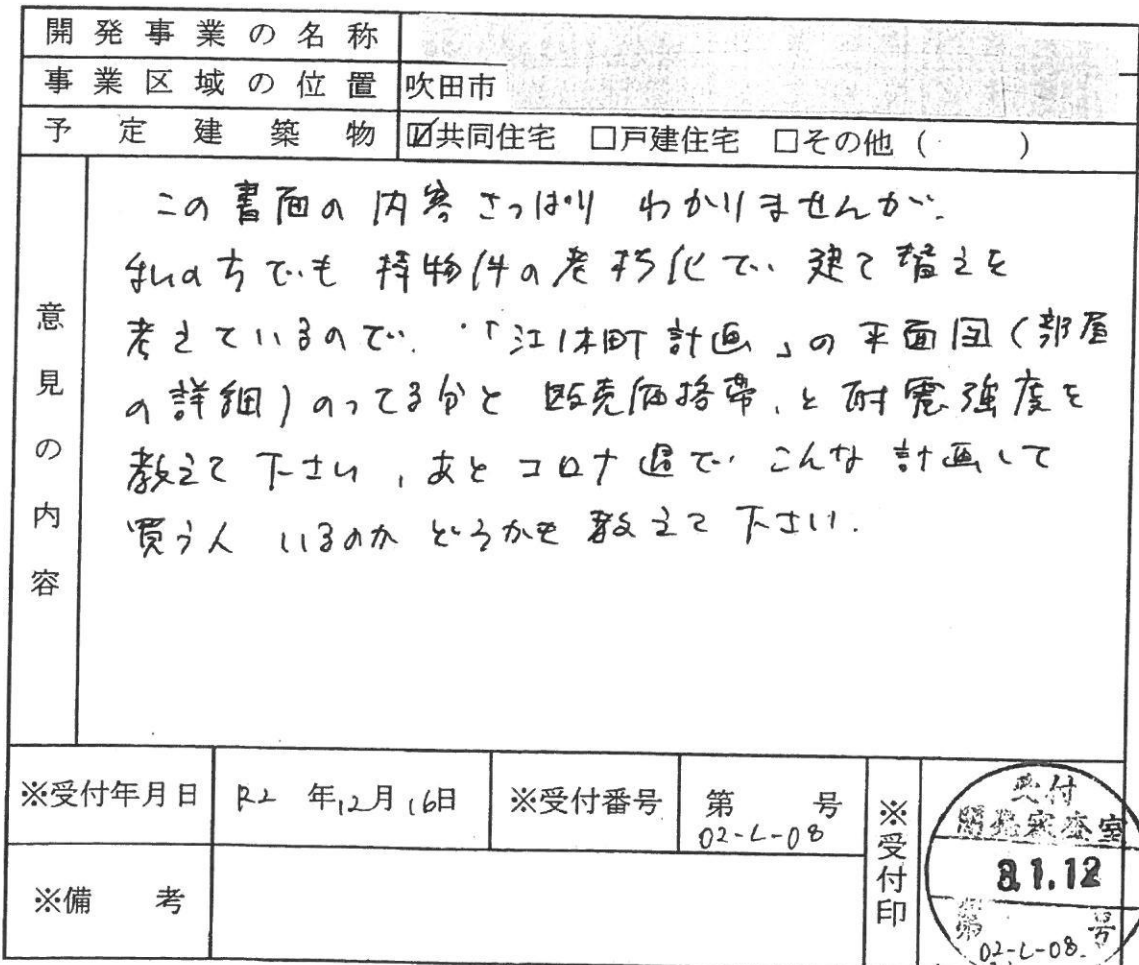 開発事業の名称
事業区域の位置 吹田市
予定建築物 ☑共同住宅 □戸建住宅 □その他（　　）
意見の内容
この書面の内容さっぱり わかりませんが、
私の方でも 持物件の老朽化で、建て替えを
考えているので、「江の木町計画」の平面図（部屋
の詳細）のってる分と 販売価格帯、と耐震強度を
教えて下さい、あとコロナ過で、こんな計画して
買う人 いるのか どうかも教えて下さい.
※受付年月日 R2 年12月16日 ※受付番号 第 号
02-L-08
※受付印
受付
開発審査室
3.1.12
第 号
02-L-08
※備考